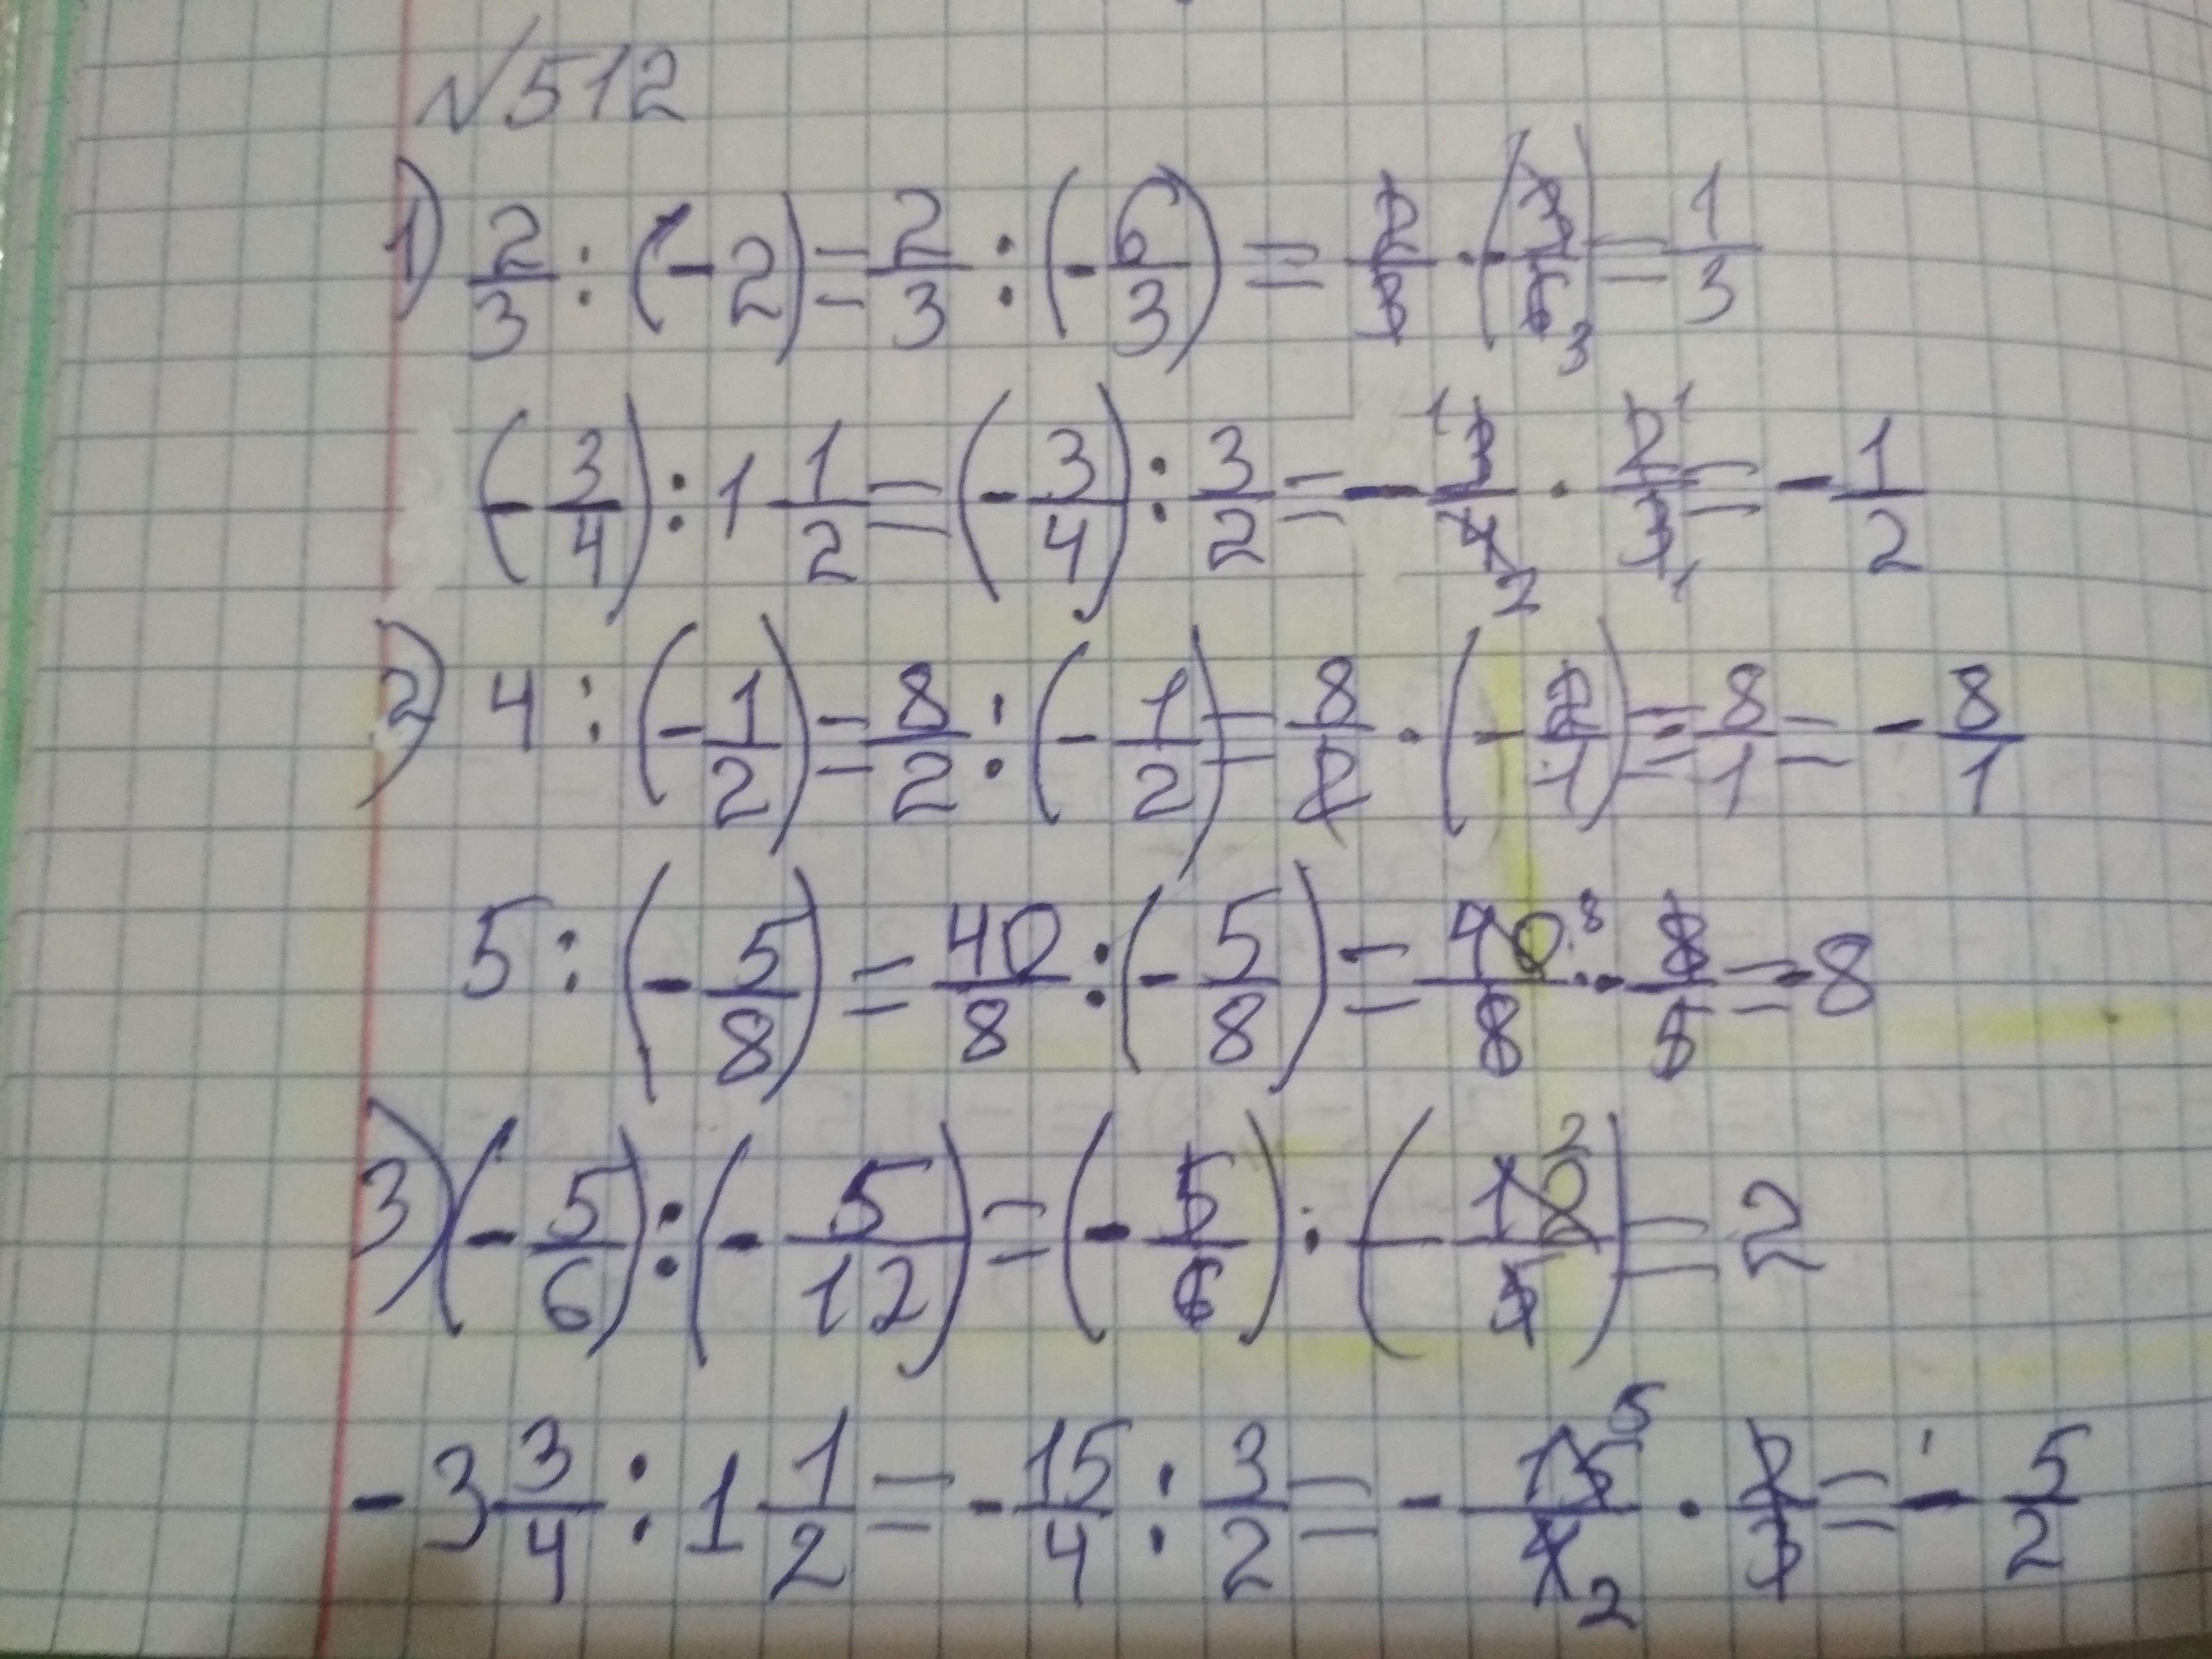 №512
1) 2/3 : (-2) = 2/3 : (-6/3) = 2/3 · (-3/6 3) = 1/3
(-3/4) : 1 1/2 = (-3/4) : 3/2 = - 1 3/4 2 · 2 1/3 1 = -1/2
2) 4 : (-1/2) = 8/2 : (-1/2) = 8/2 · (-2/1) = 8/1 = -8/1
5 : (-5/8) = 40/8 : (-5/8) = 40 8/8 · -8/5 = -8
3) (-5/6) : (-5/12) = (-5/6) · (-12 2/5) = 2
-3 3/4 : 1 1/2 = -15/4 : 3/2 = -15 5/4 2 · 2/3 = -5/2